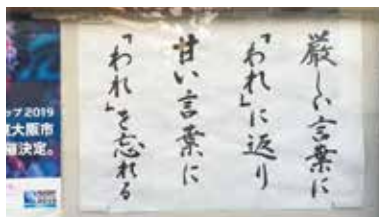 厳しい言葉に
「われ」に返り
甘い言葉に
「われ」を忘れる
ップ2019
大阪市
催決定。